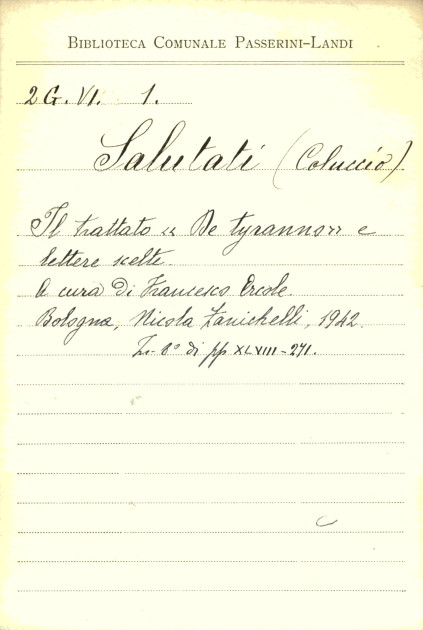 BIBLIOTECA COMUNALE PASSERINI-LANDI
2 G. VI. 1.
Salutati (Coluccio)
Il trattato « De tyranno » e
lettere scelte.
A cura di Francesco Ercole.
Bologna, Nicola Zanichelli, 1942.
In-8° di pp XLVIII-271.